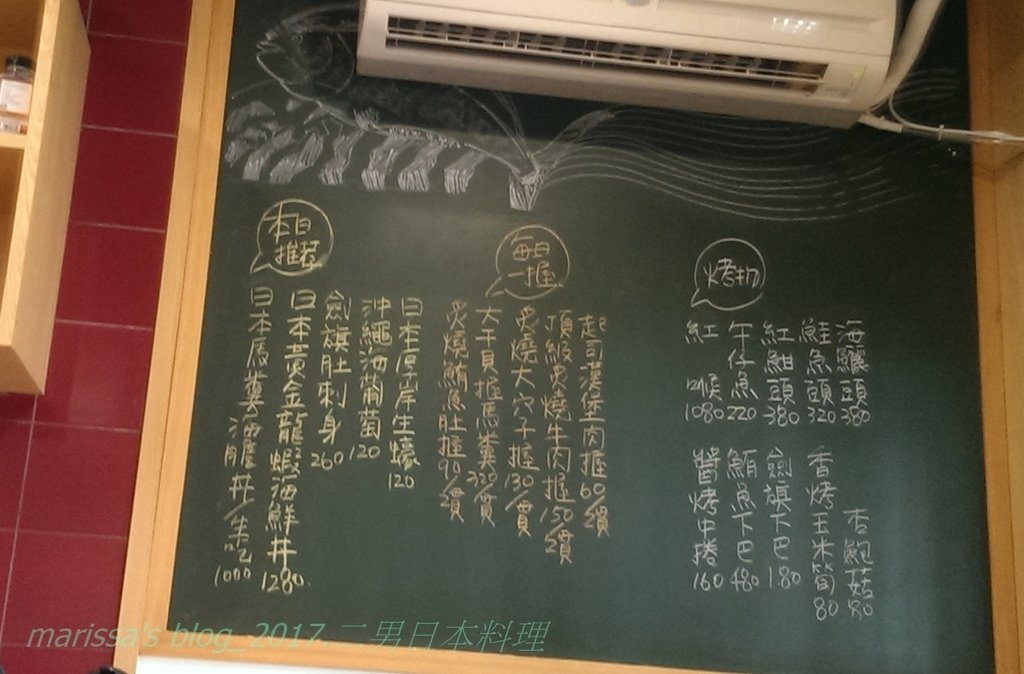 本日推薦
日本厚岸生蠔 120
沖繩海葡萄 120
劍旗肚刺身 260
日本黃金龍蝦海鮮丼 1280
日本馬糞海膽丼/生吃 1000
每日一握
起司漢堡肉握 60/貫
頂級炙燒牛肉握 150/貫
炙燒大穴子握 130/貫
大干貝握馬糞 320/貫
炙燒鮪魚肚握 90/貫
烤物
海鱺頭 380
鮭魚頭 320
紅魽頭 380
午仔魚 220
紅喉 1080
杏鮑菇 80
香烤玉米筍 80
劍旗下巴 180
鮪魚下巴 480
醬烤中捲 160
marissa's blog_2017 二男日本料理